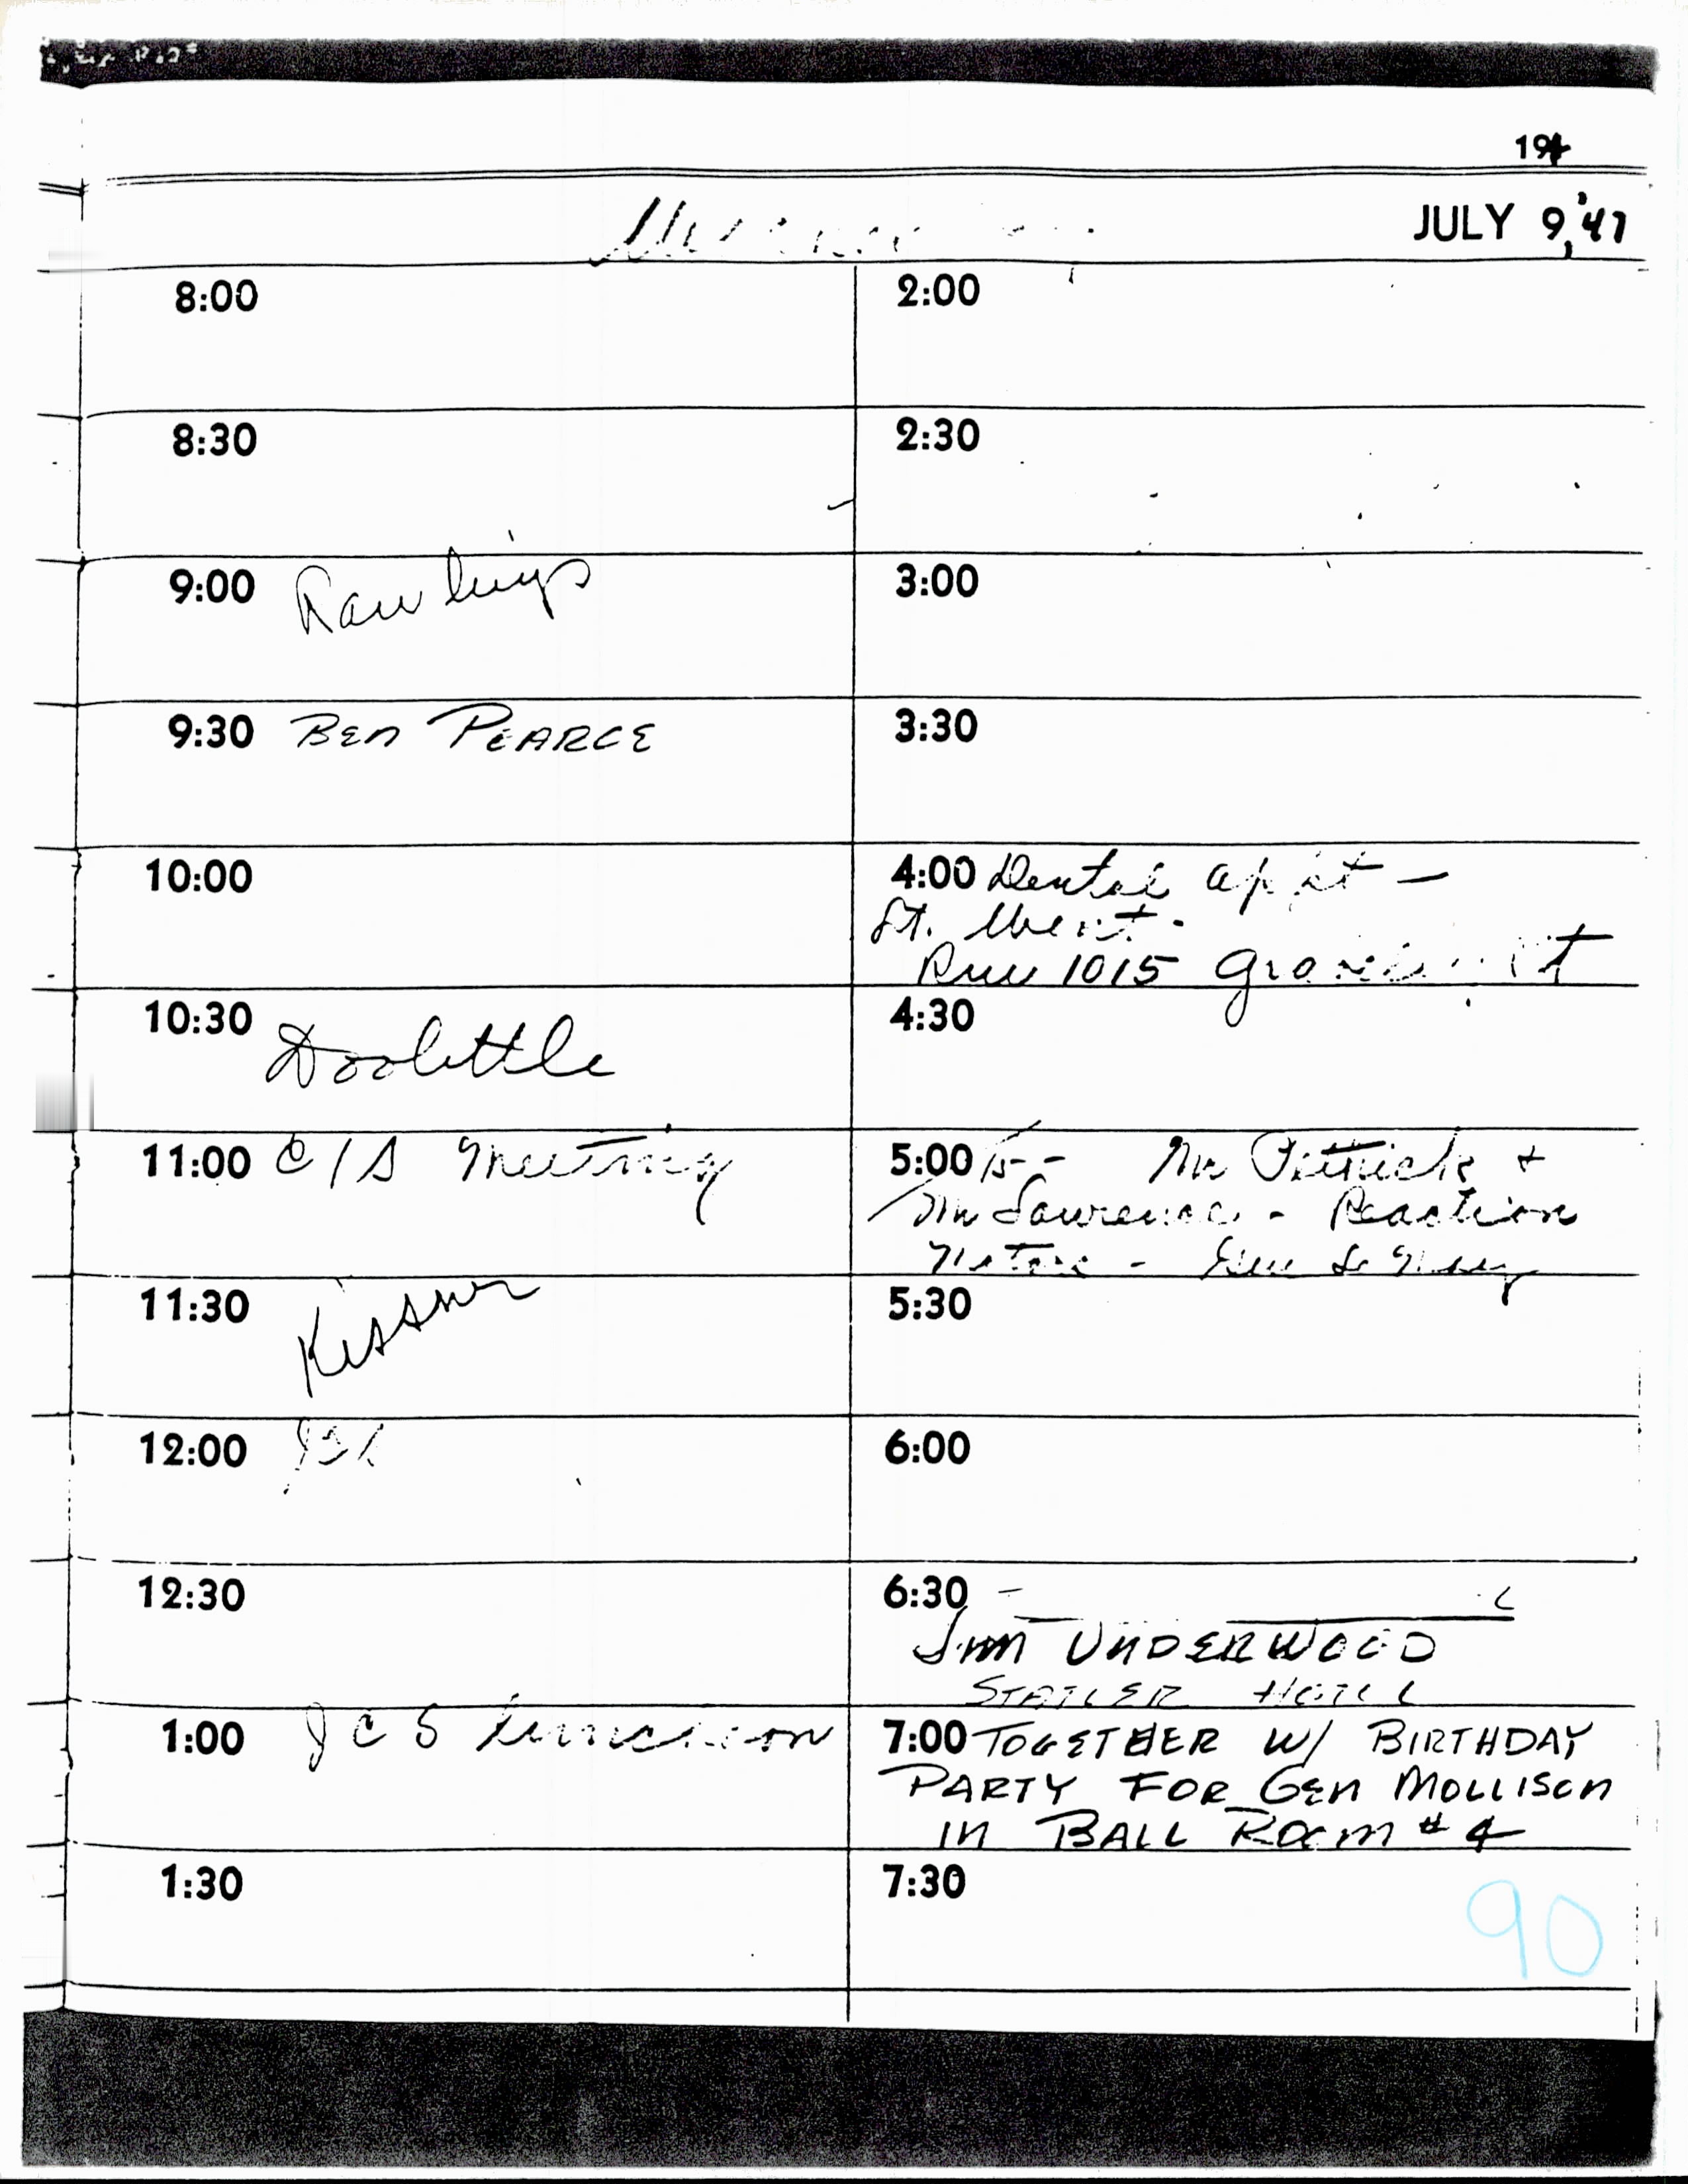 194
JULY 9,'47
8:00
8:30
9:00 Rawlings
9:30 BEN PEARCE
10:00
10:30 Doolittle
11:00 C/S Meeting
11:30 Kissner
12:00
12:30
1:00 JCS Luncheon
1:30
2:00
2:30
3:00
3:30
4:00 Dental appt —
Lt.
Rm 1015
4:30
5:00/15 - Mr &
Mr Lawrence - Reaction
Motors - Gen Le May
5:30
6:00
6:30
JIM UNDERWOOD
STATLER HOTEL
7:00 TOGETHER W/ BIRTHDAY
PARTY FOR GEN MOLLISON
IN BALL ROOM #4
7:30
90